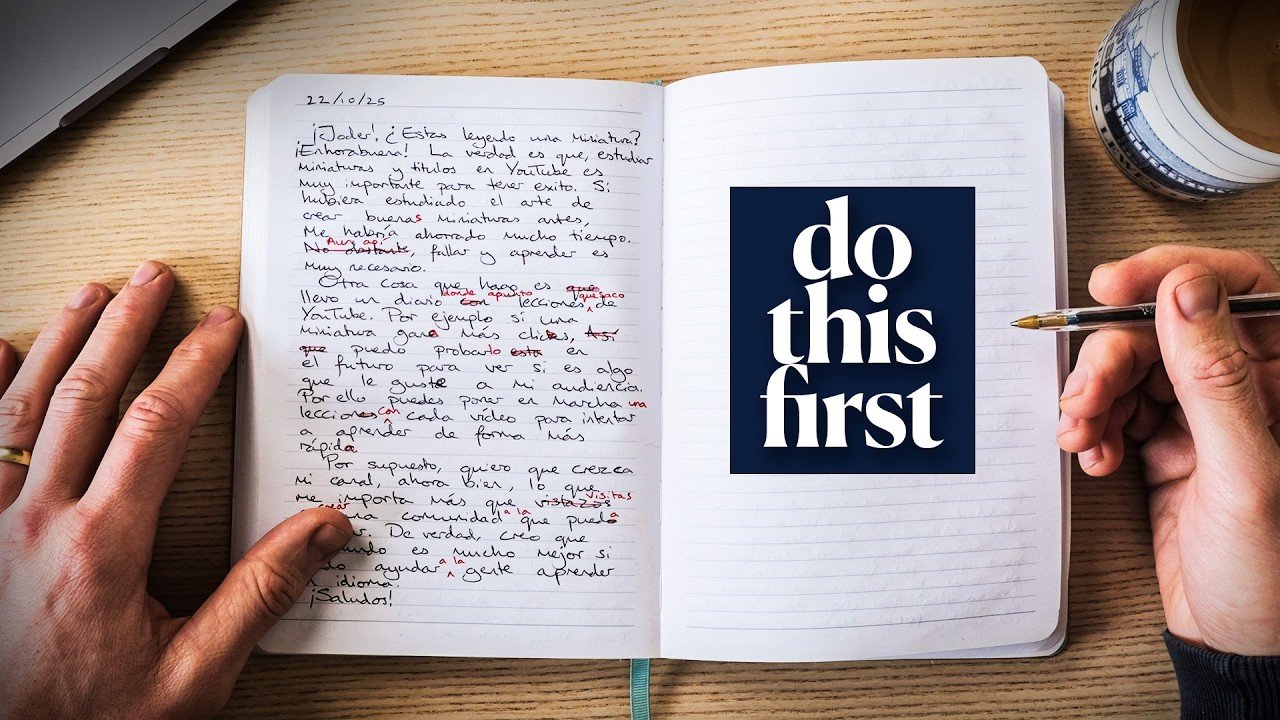 22/10/25
¡Joder! ¿Estas leyendo una miniatura?
¡Enhorabuena! La verdad es que, estudiar
miniaturas y titulos en YouTube es
muy importante para tener exito. Si
hubiera estudiado el arte de
crear buenas miniaturas antes,
me habría ahorrado mucho tiempo.
Aun así
No obstante, fallar y aprender es
muy necesario.
Otra cosa que hago es que
donde apunto que saco
llevo un diario con lecciones de
YouTube. Por ejemplo si una
miniatura gane más clicks, Así
que puedo probarlo esta en
el futuro para ver si es algo
que le guste a mi audiencia.
Por ello puedes poner en marcha una
lecciones con cada vídeo para intentar
a aprender de forma más
rápida
Por supuesto, quiero que crezca
mi canal, ahora bien, lo que
visitas
me importa más que vistazos
una comunidad a la que pueda
De verdad, creo que
es mucho mejor si
ayudar a la gente aprender
idioma.
¡Saludos!
do
this
first